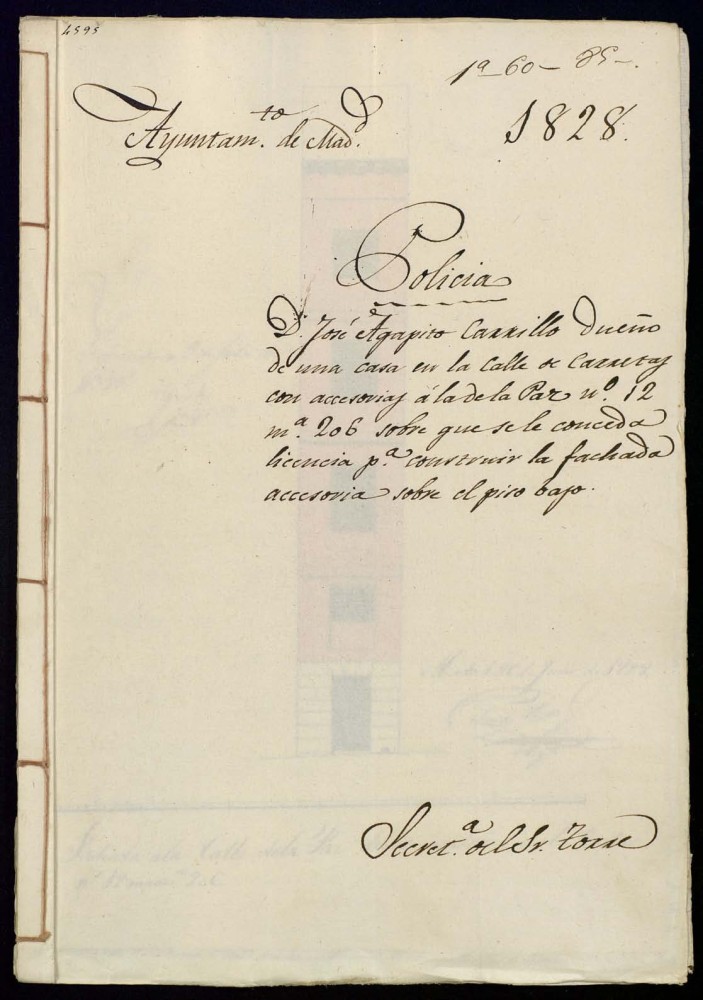 4595
1ª-60-85-.
Ayuntam.to de Mad.d
1828.
Policia
D.n José Agapito Carrillo dueño
de una casa en la Calle de Carretas
con accesorias á la de la Paz nº. 12
m.ª 206 sobre que se le conceda
licencia p.ª construir la fachada
accesoria sobre el piso bajo.
Secret.ª del Sr. Torre